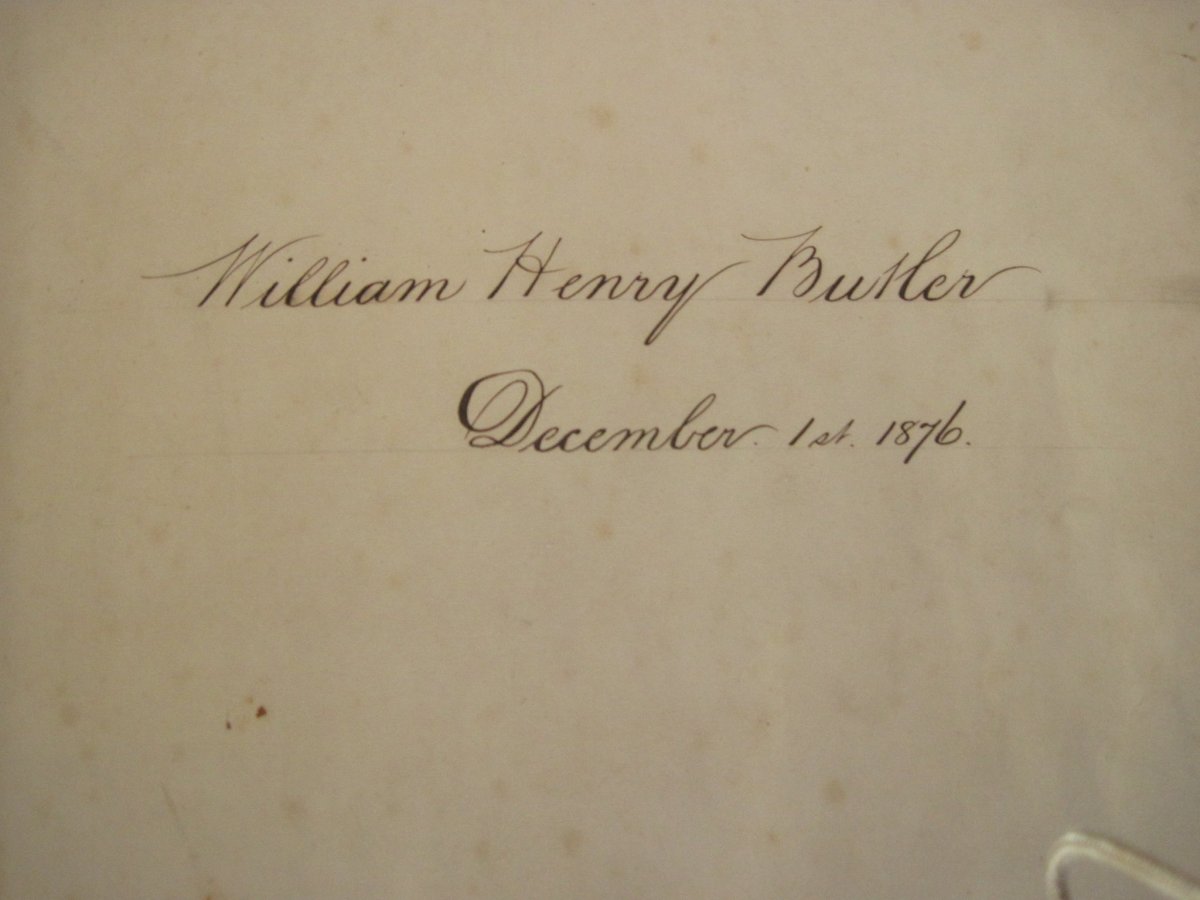 William Henry Butler
December 1st. 1876.